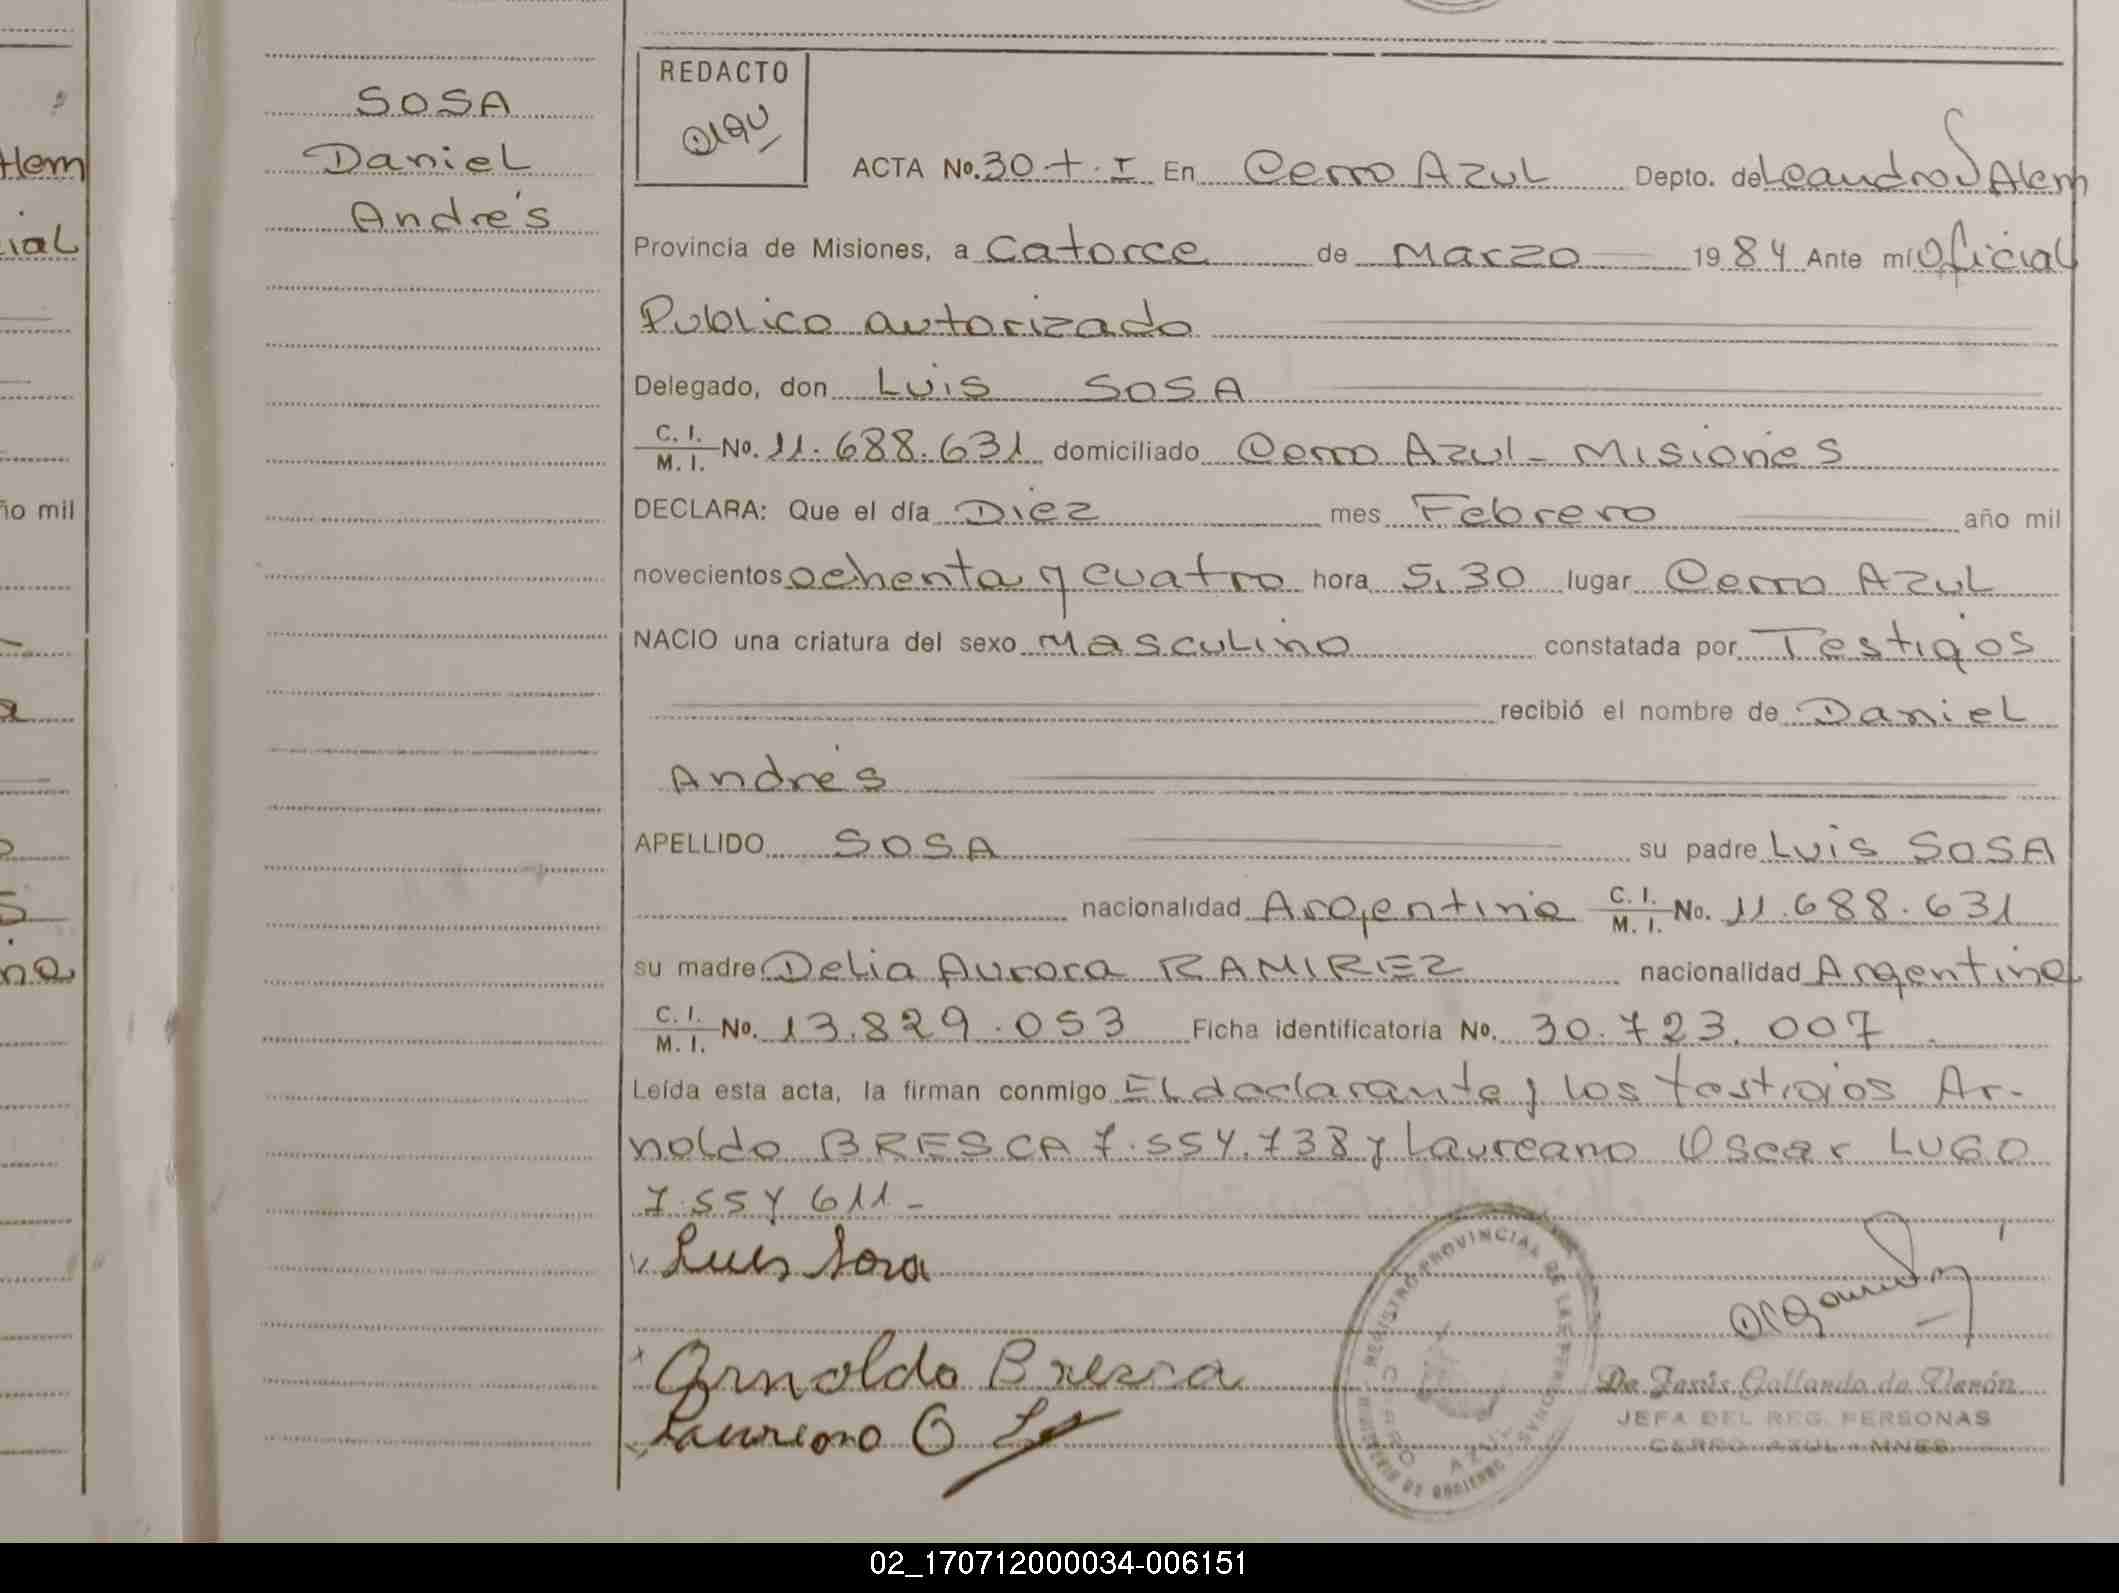 Hem
ial
ño mil
a
S
na
SOSA
Daniel
Andrés
REDACTO
ACTA No. 30 t. I En Cerro Azul Depto. de Leandro N Alem
Provincia de Misiones, a Catorce de Marzo 1984 Ante mí Oficial
Publico autorizado
Delegado, don Luis SOSA
C. I.
M. I. No. 11.688.631 domiciliado Cerro Azul - Misiones
DECLARA: Que el día Diez mes Febrero año mil
novecientos ochenta y cuatro hora 5,30 lugar Cerro Azul
NACIO una criatura del sexo Masculino constatada por Testigos
recibió el nombre de Daniel
Andrés
APELLIDO SOSA su padre Luis SOSA
nacionalidad Argentina C. I.
M. I. No. 11.688.631
su madre Delia Aurora RAMIREZ nacionalidad Argentina
C. I.
M. I. No. 13.829.053 Ficha identificatoria No. 30.723.007
Leída esta acta, la firman conmigo El declarante y los testigos Ar-
noldo BRESCA 7.554.738 y Laureano Oscar LUGO
7.554 611-
Luis Sosa
Arnoldo Bresca
Laureano O
REGISTRO PROVINCIAL DE LAS PERSONAS
MINISTERIO DE GOBIERNO
CERRO AZUL
De Jesús Gallardo de
JEFA DEL REG. PERSONAS
CERRO AZUL - MNES
02_170712000034-006151